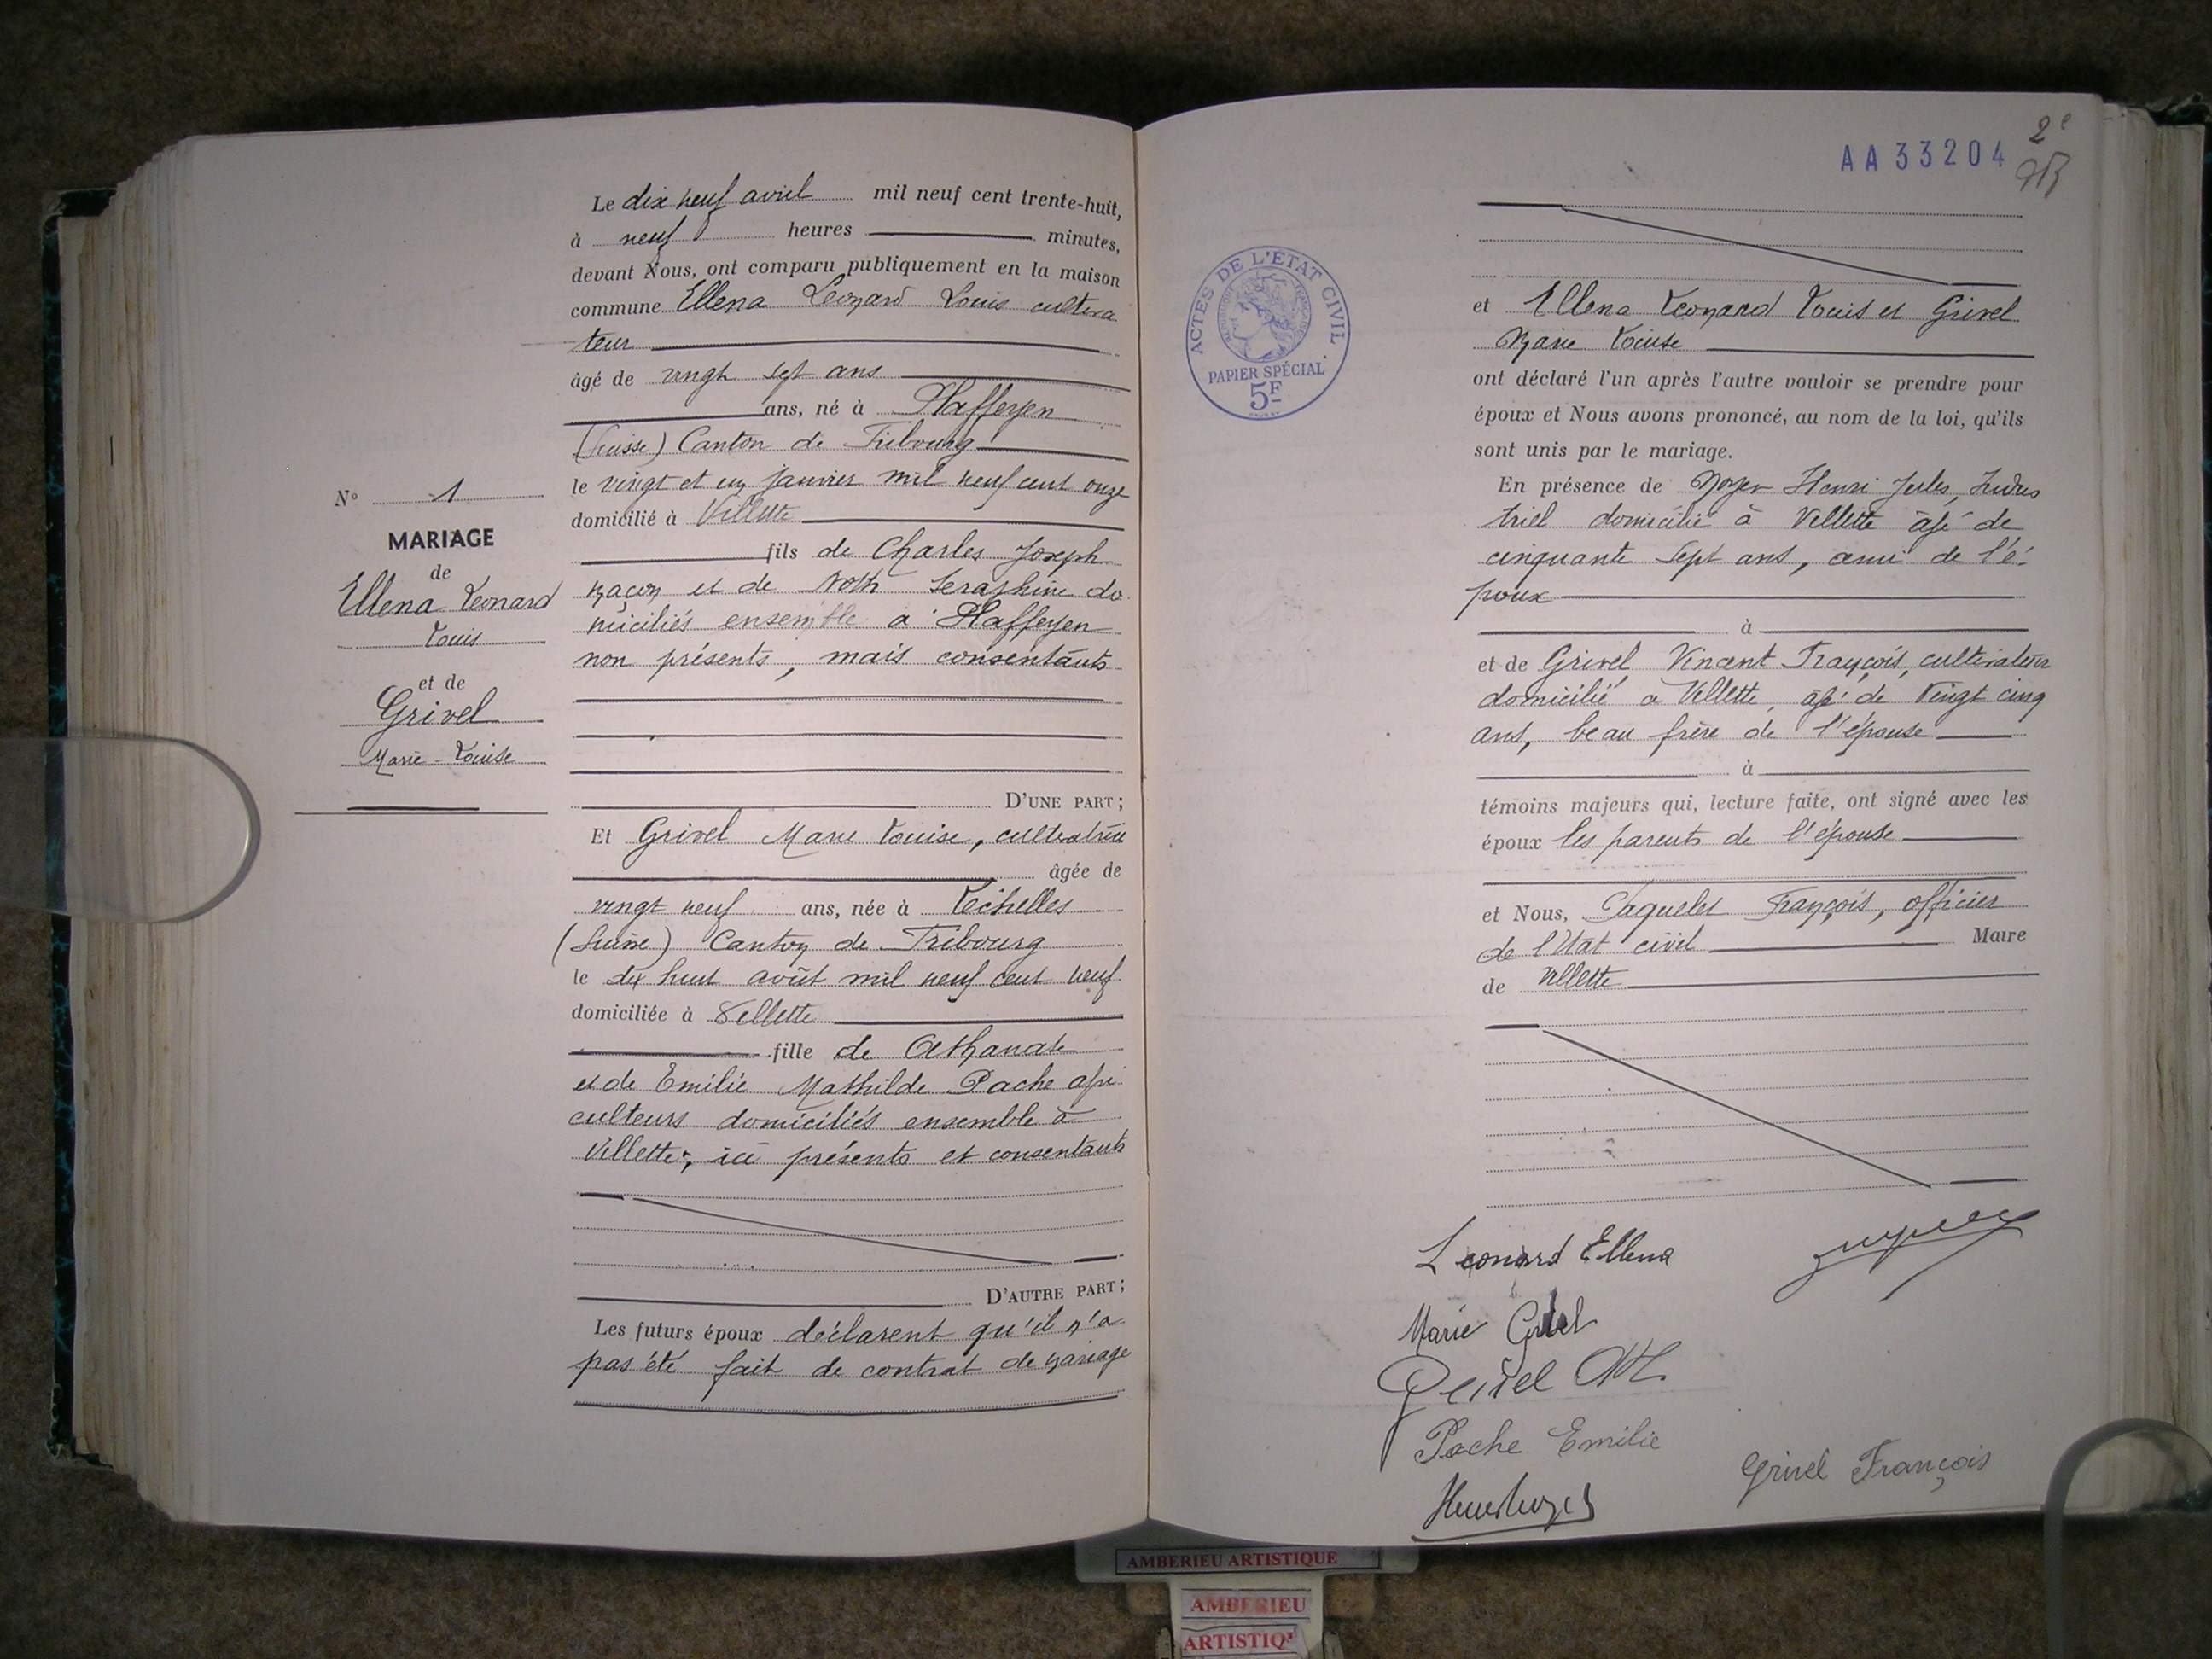 Le dix neuf avril mil neuf cent trente-huit,
à neuf heures minutes,
devant Nous, ont comparu publiquement en la maison
commune Ellena Léonard Louis cultiva
teur
âgé de vingt sept ans
ans, né à Plaffeyen
(Suisse) Canton de Fribourg
le vingt et un janvier mil neuf cent onze
domicilié à Villette
fils de Charles Joseph
maçon et de Noth Seraphine do
miciliés ensemble à Plaffeyen
non présents, mais consentants
D'UNE PART;
Et Grivel Marie Louise, cultivatrice
âgée de
vingt neuf ans, née à Léchelles
(Suisse) Canton de Fribourg
le dix huit août mil neuf cent neuf
domiciliée à Villette
fille de Athanase
et de Emilie Mathilde Pache agri
culteurs domiciliés ensemble à
Villette, ici présents et consentants
D'AUTRE PART;
Les futurs époux déclarent qu'il n'a
pas été fait de contrat de mariage
N° 1
MARIAGE
de
Ellena Léonard
Louis
et de
Grivel
Marie-Louise
AA33204
2e
ACTES DE L'ÉTAT CIVIL
PAPIER SPÉCIAL
5F
et Ellena Léonard Louis et Grivel
Marie Louise
ont déclaré l'un après l'autre vouloir se prendre pour
époux et Nous avons prononcé, au nom de la loi, qu'ils
sont unis par le mariage.
En présence de Henri Jules, Indus
triel domicilié à Villette âgé de
cinquante sept ans, ami de l'é-
poux
à
et de Grivel Vincent François, cultivateur
domicilié à Villette, âgé de vingt cinq
ans, beau frère de l'épouse
à
témoins majeurs qui, lecture faite, ont signé avec les
époux les parents de l'épouse
et Nous, François, officier
de l'Etat civil Maire
de Villette
Léonard Ellena
Marie Grivel
Grivel Ath.
Pache Emilie
Grivel François
AMBERIEU ARTISTIQUE
AMBERIEU
ARTISTIQ